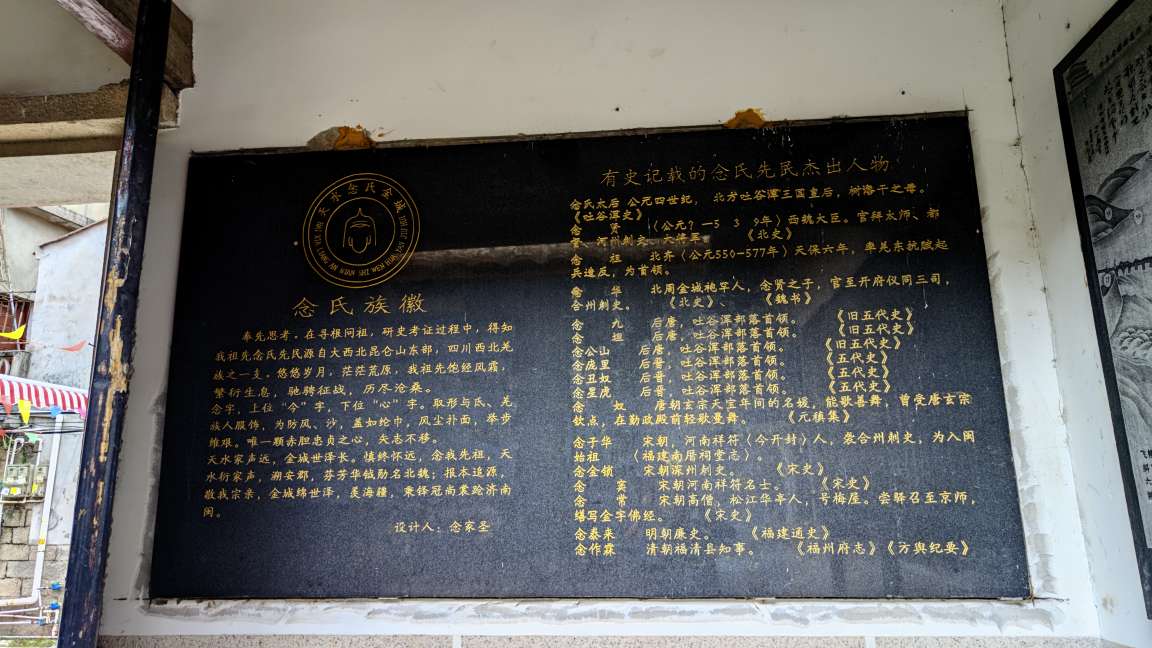 天水念氏金城
念氏族徽
奉先思考．在寻根问祖，研史考证过程中，得知
我祖先念氏先民源自大西北昆仑山东部，四川西北羌
族之一支。悠悠岁月，茫茫荒原，我祖先饱经风霜，
繁衍生息，驰骋征战，历尽沧桑。
念字，上位“今”字，下位“心”字。取形与氏、羌
族人服饰，为防风、沙，盖如纶巾，风尘扑面，举步
维艰。唯一颗赤胆忠贞之心，矢志不移。
天水家声远，金城世泽长。慎终怀远，念我先祖，天
水衍家声，溯安郡，芬芳华钺勋名北魏；报本追源，
敬我宗亲，金城绵世泽，莫海疆，秉铎冠尚裳跄济南
闽。
设计人：念家圣
有史记载的念氏先民杰出人物
念氏太后 公元四世纪，北方吐谷浑三国皇后，树洛干之母。
《吐谷浑史》
念 贤 （公元？—539年）西魏大臣。官拜太师、都
督、河州刺史、大将军。 《北史》
念 祖 北齐（公元550-577年）天保六年，率羌东抗赋起
兵造反，为首领。
念 华 北周金城枹罕人，念贤之子，官至开府仪同三司，
合州刺史。 《北史》、 《魏书》
念 九 后唐，吐谷浑部落首领。 《旧五代史》
念 后唐，吐谷浑部落首领。 《旧五代史》
念公山 后唐，吐谷浑部落首领。 《旧五代史》
念庞里 后晋，吐谷浑部落首领。 《五代史》
念丑奴 后晋，吐谷浑部落首领。 《五代史》
念星虎 后晋，吐谷浑部落首领。 《五代史》
念 奴 唐朝玄宗天宝年间的名媛，能歌善舞，曾受唐玄宗
钦点，在勤政殿前轻歌曼舞。 《元稹集》
念子华 宋朝，河南祥符（今开封）人，袭合州刺史，为入闽
始祖 （福建南厝祠堂志）。
念金锁 宋朝深州刺史。 《宋史》
念 宾 宋朝河南祥符名士。 《宋史》
念 常 宋朝高僧，松江华亭人，号梅屋。尝驿召至京师，
缮写金字佛经。 《宋史》
念泰来 明朝廉史。 《福建通史》
念作霖 清朝福清县知事。 《福州府志》《方舆纪要》